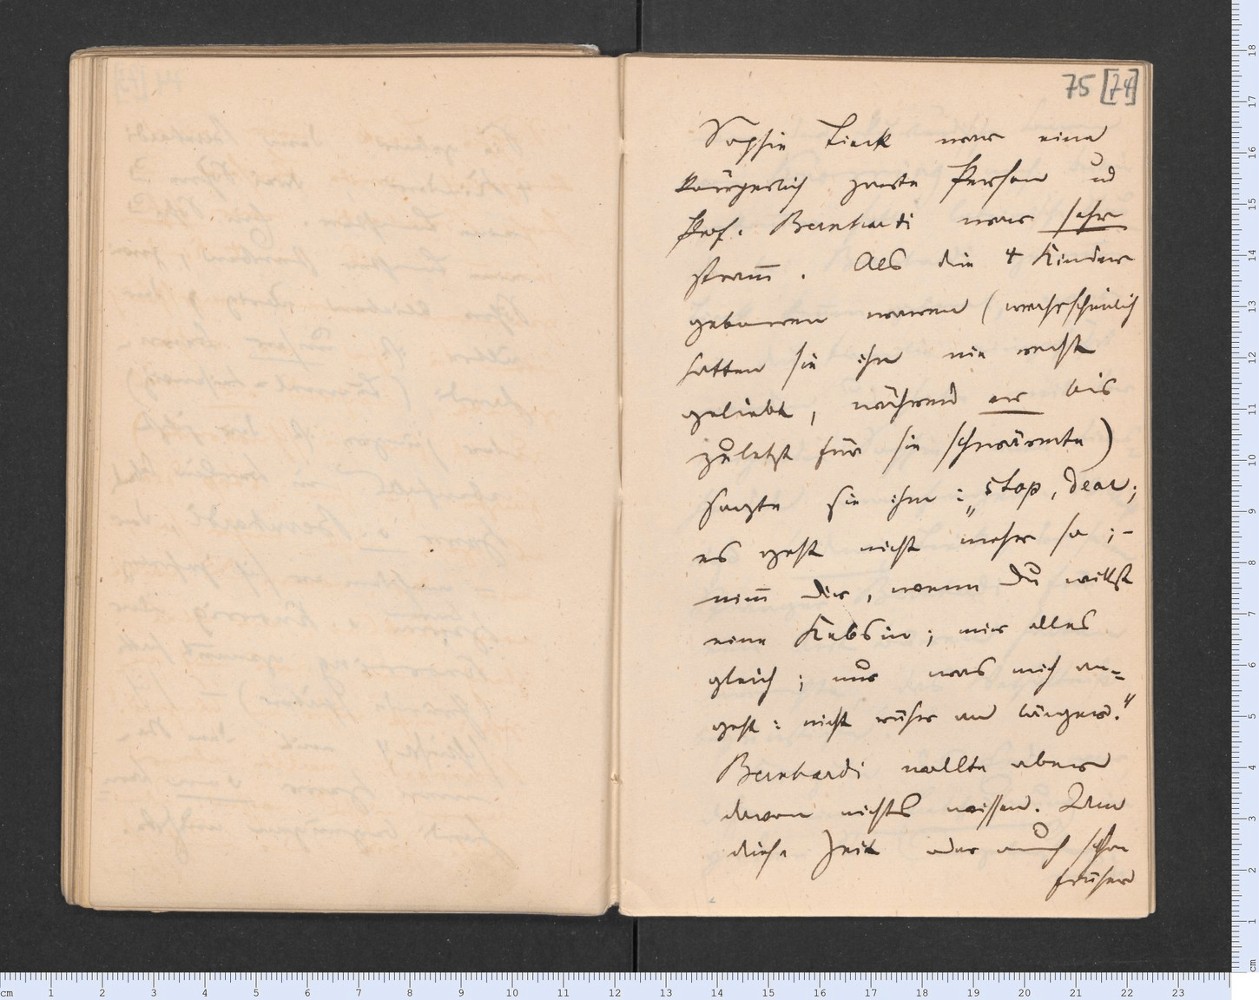 75 [74]
Sophie Tieck war eine
körperlich zarte Person und
Prof. Bernhardi war sehr
stram̅. Als die 4 Kinder
geboren waren (wahrscheinlich
hatten sie ihn nie recht
geliebt, während er bis
zuletzt für sie schwärmte)
sagte sie ihm: „stop, dear;
es geht nicht mehr so; –
nim̅ Dir, wenn Du willst
eine Kebsin; mir alles
gleich; nur was mich an=
geht: nicht rühr an länger."
Bernhardi wollte aber
davon nichts wissen. Um
diese Zeit oder auch schon
früher